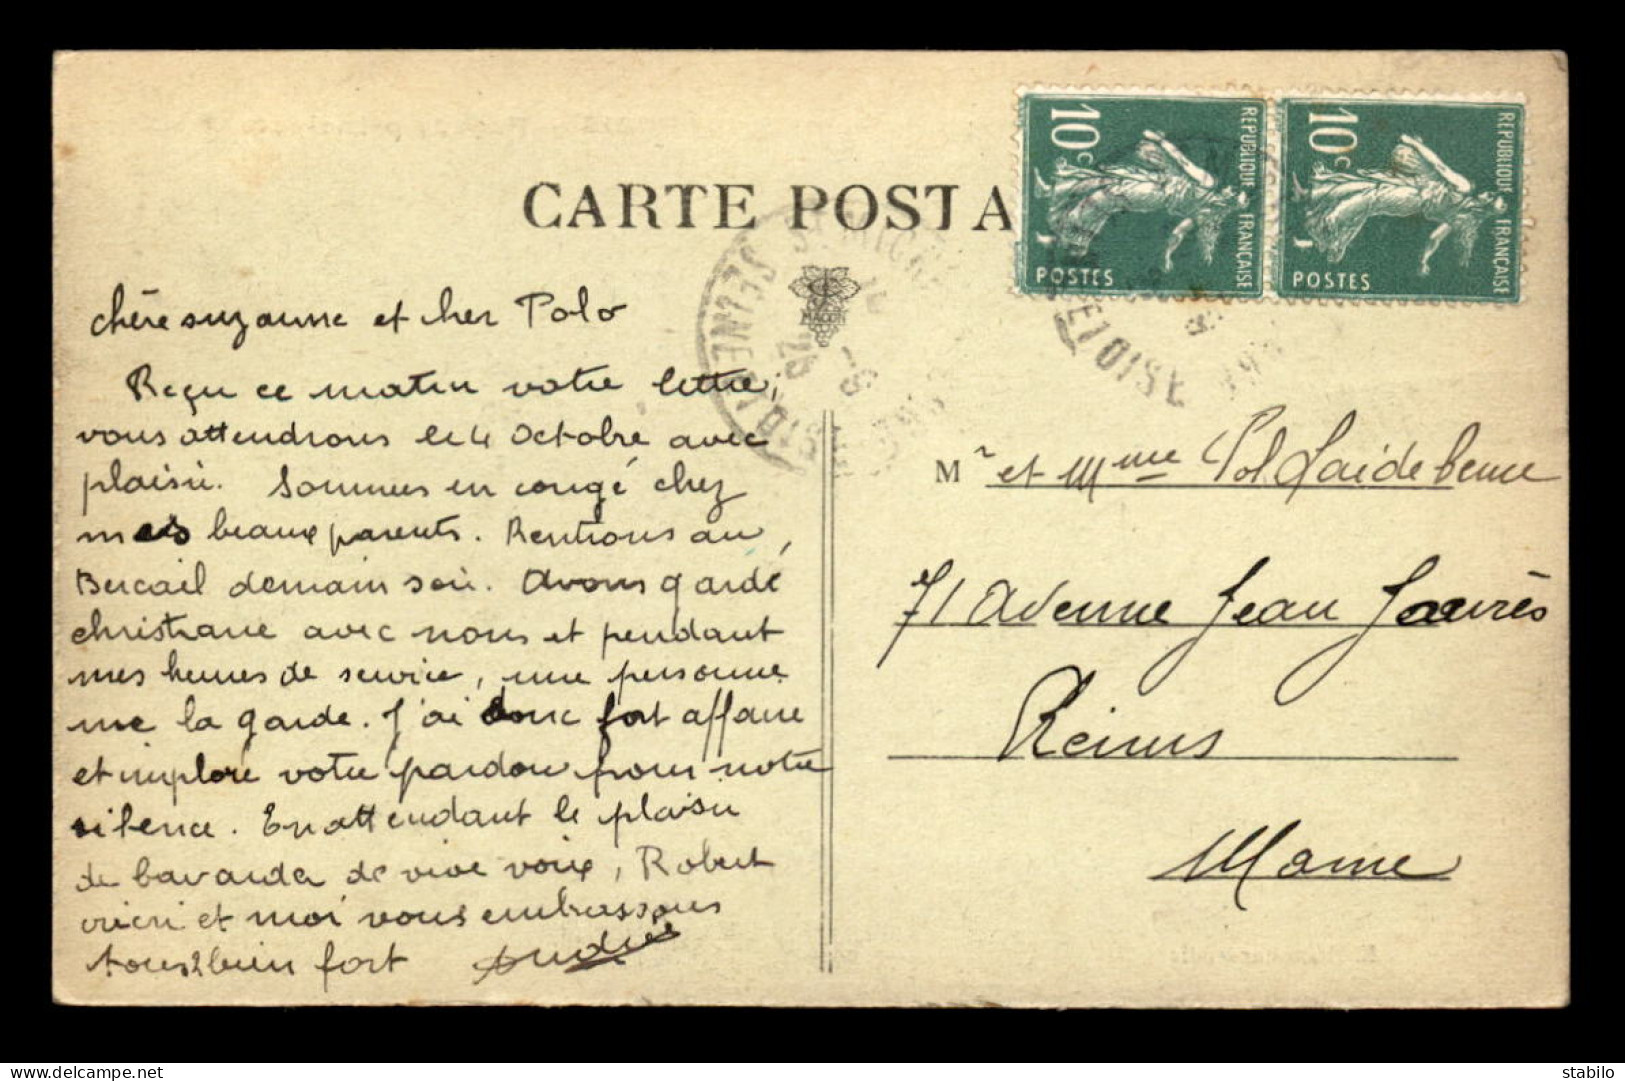 CARTE POSTA
10c
REPUBLIQUE FRANÇAISE
POSTES
10c
REPUBLIQUE FRANÇAISE
POSTES
SEINE
ET OISE
MACON
chère suzanne et cher Polo
Reçu ce matin votre lettre,
vous attendrons le 4 Octobre avec
plaisir. Sommes en congé chez
mes beaux parents. Rentrons au
Bercail demain soir. Avons gardé
christiane avec nous et pendant
mes heures de service, une personne
me la garde. J'ai donc fort affaire
et implore votre pardon pour notre
silence. En attendant le plaisir
de bavarder de vive voix, Robert
cricri et moi vous embrassons
tous 2 bien fort Andrée
Mr et Mme Pol Laidebeur
71 Avenue Jean Jaurès
Reims
Marne
delcampe.net
stabilo